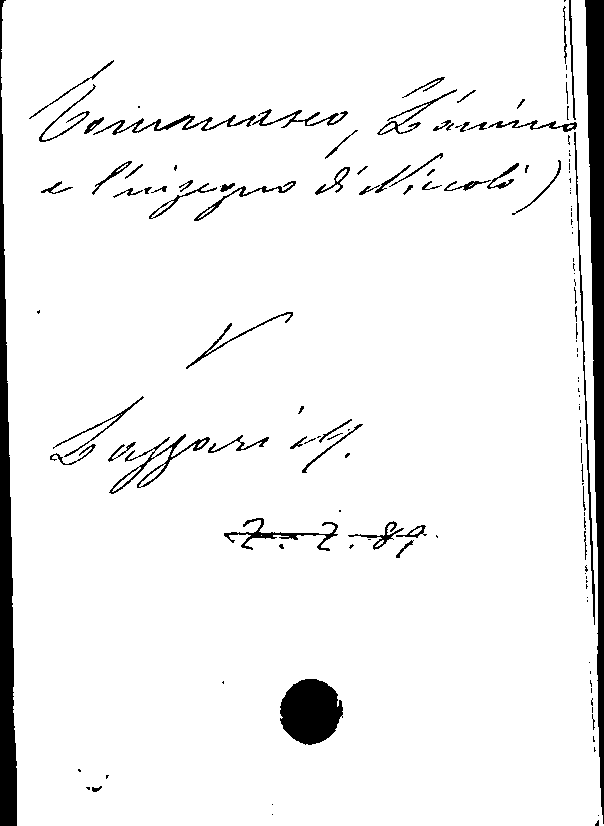 Tommaseo, L'animo
e l'inzegno di Niccolò)
V
Lazzari M.
7. 7. 89